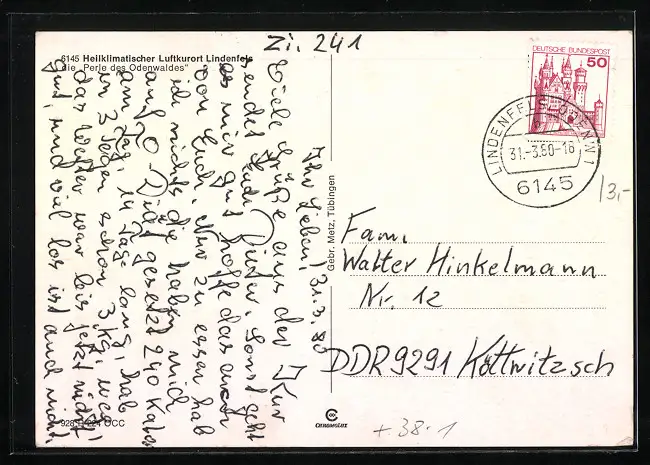 Zi. 241
6145 Heilklimatischer Luftkurort Lindenfels
die „Perle des Odenwaldes"
Ihr Lieben! 31.3.80
Viele Grüße aus der Kur
sendet Euch Dieter. Sonst geht
es mir gut hoffe das auch
von Euch. Nur zu essen hab
ich nichts die haben mich
auf O-Diät gesetzt 240 Kalor
am Tag, 14 Tage lang, hab
in 3 Tagen schon 3 kg. weg,
das Wetter war bis jetzt nicht
gut, und viel los ist auch nicht.
928 UCC
Gebr. Metz, Tübingen
CHROMOLUX
DEUTSCHE BUNDESPOST
50
LINDENFELS, ODENW 1
31.-3.80-16
6145
13,-
Fam.
Walter Hinkelmann
Nr. 12
DDR 9291 Köttwitzsch
+ 38-1